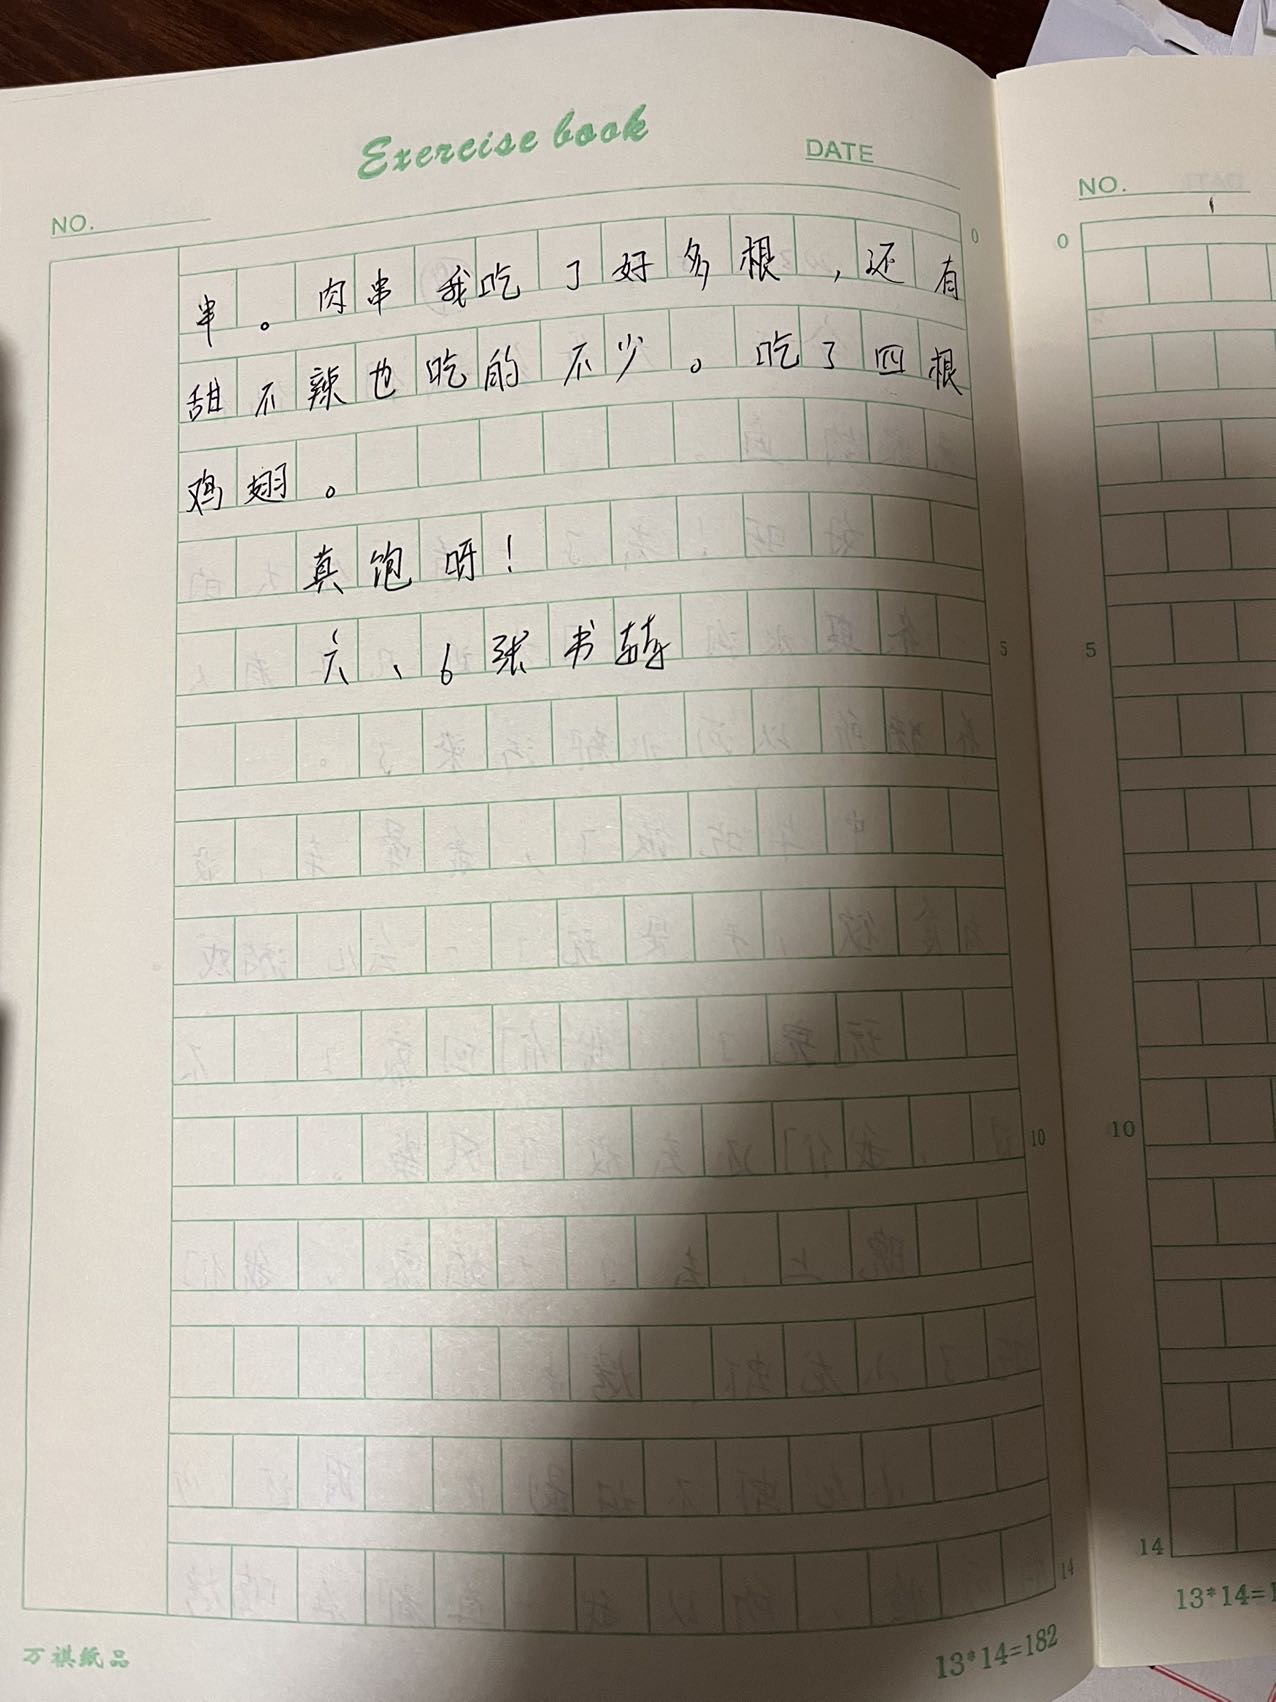 Exercise book
DATE
NO.
串。肉串我吃了好多根，还有
甜不辣也吃的不少。吃了四根
鸡翅。
真饱呀！
六、6张书
0
5
10
14
万祺纸品
13*14=182
NO.
0
5
10
14
13*14=1